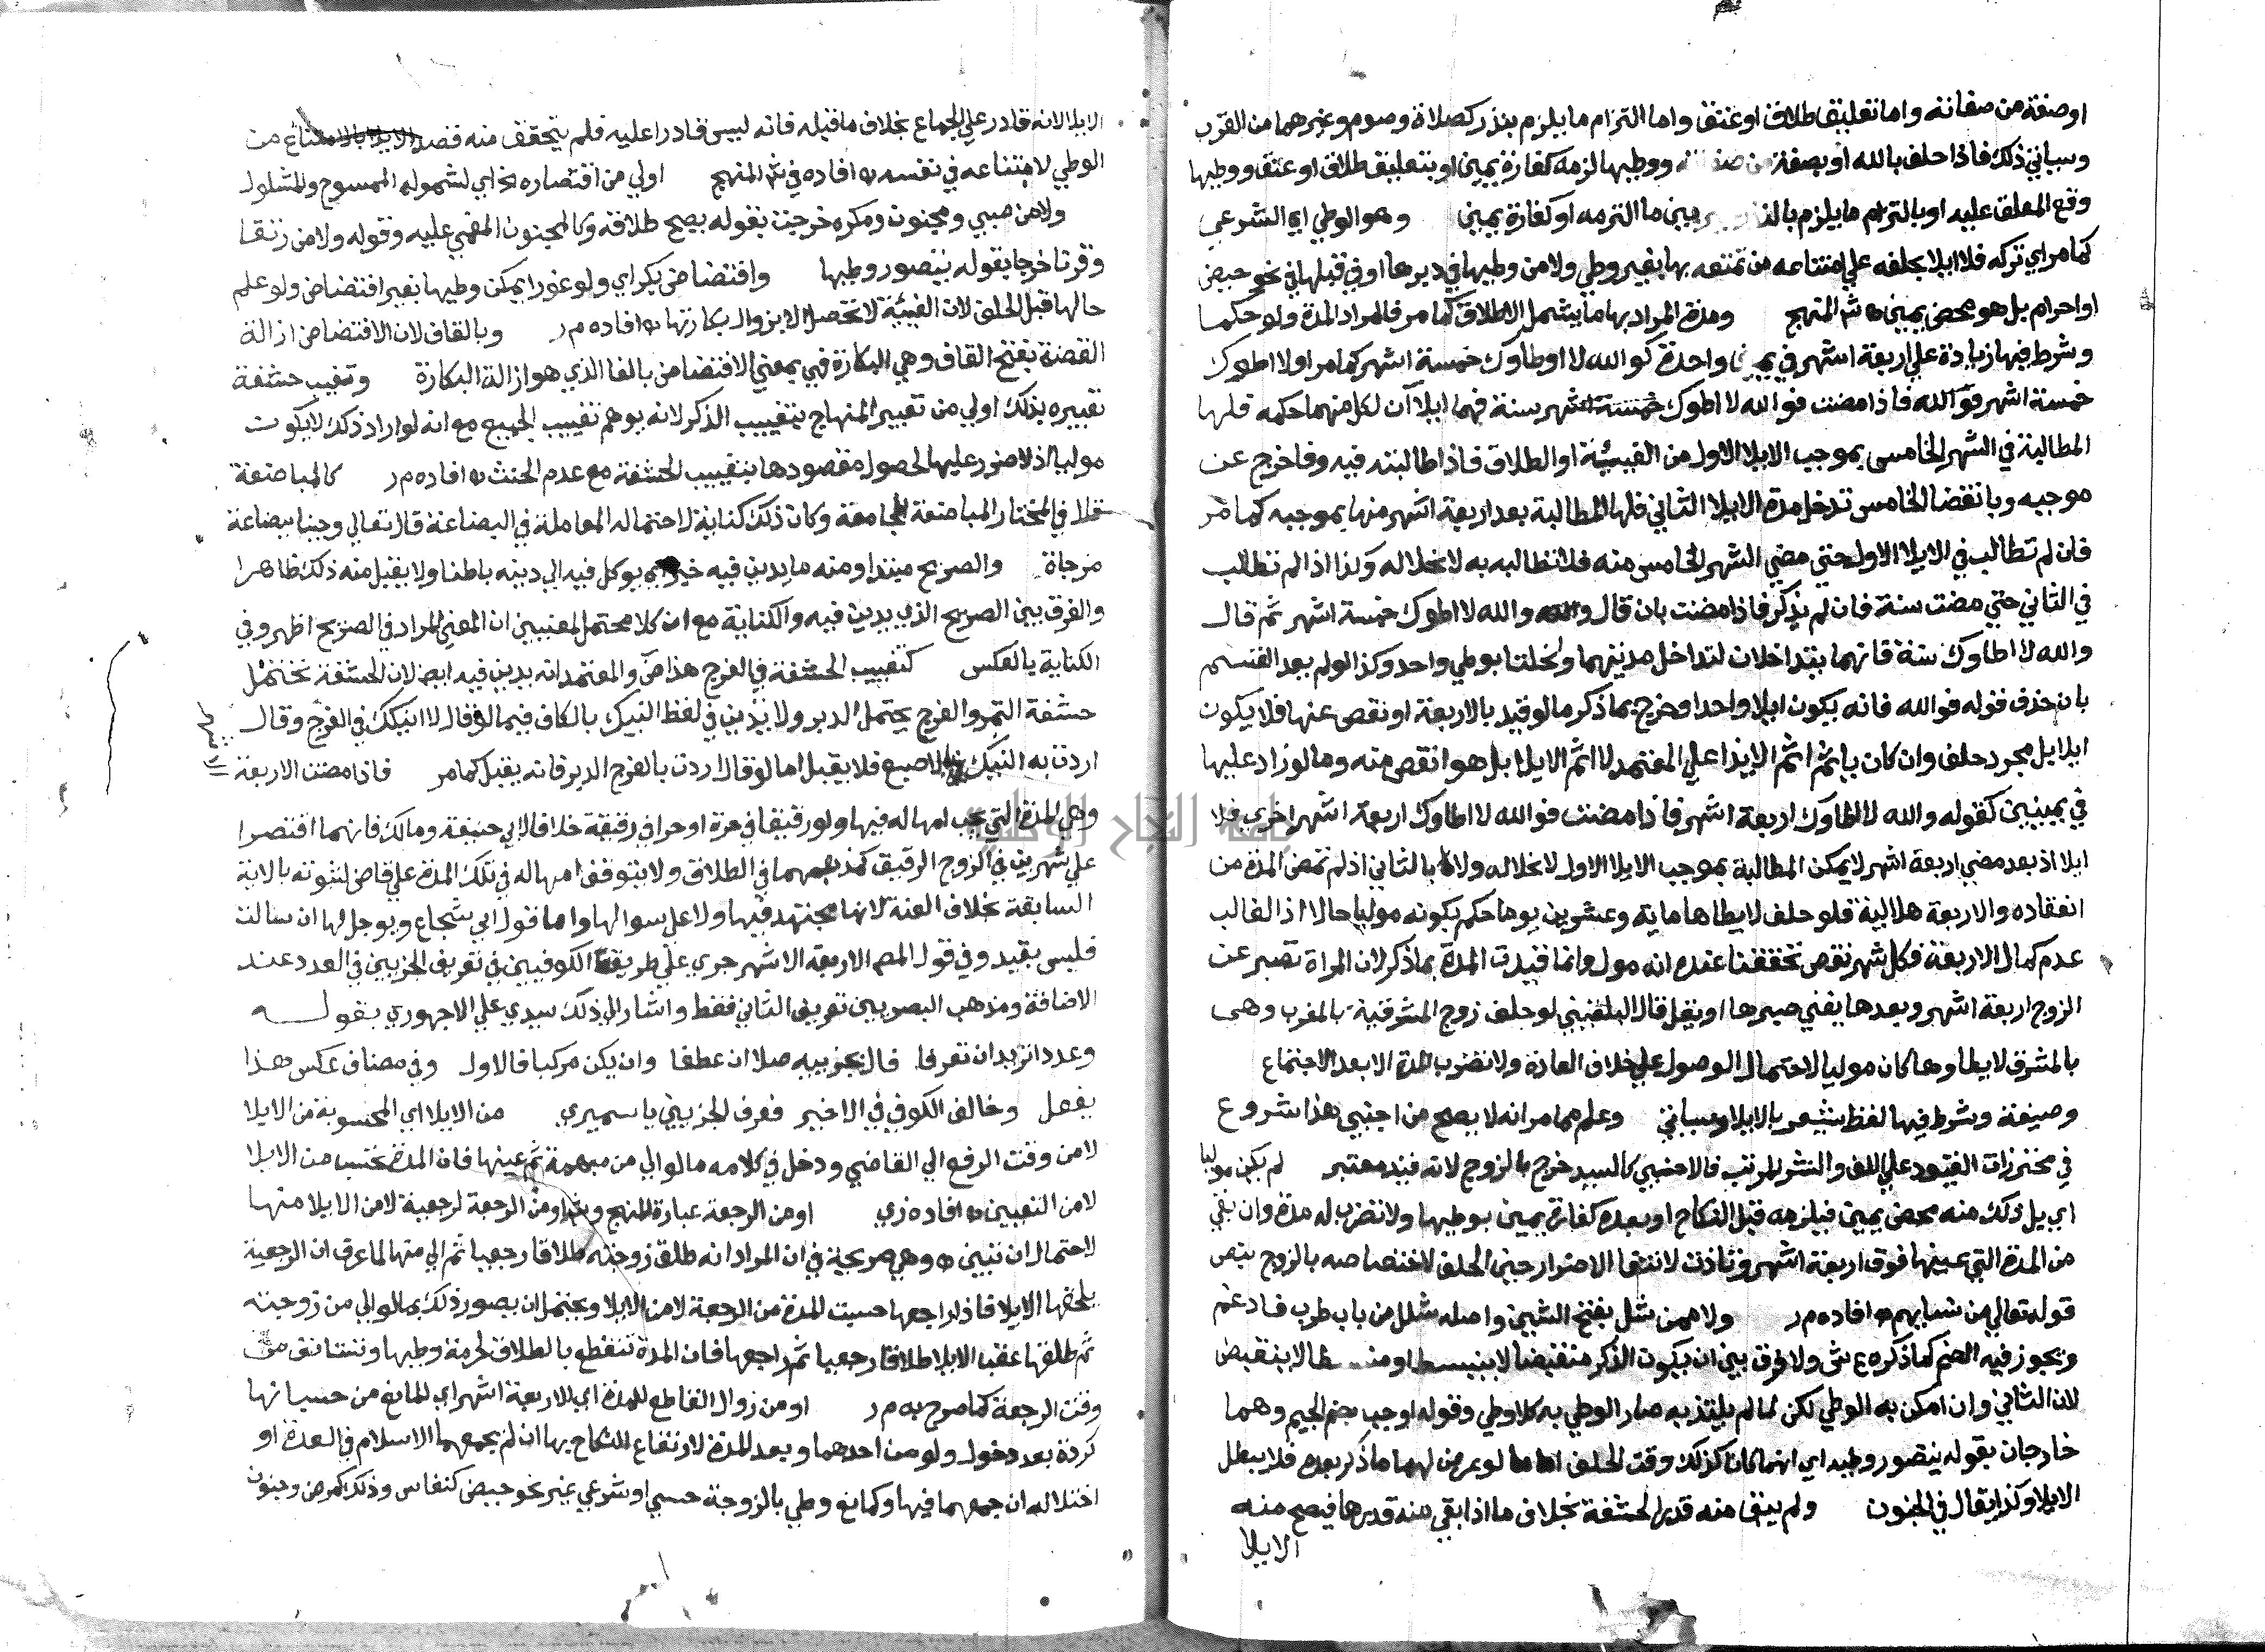 او صفة من صفاته واما تعليق طلاق او عتق واما التزام ما يلزم بنذر كصلاة وصوم وغيرهما من القرب
وسياتي ذلك فاذا حلف بالله او بصفة من صفاته ووطيها لزمه كفارة يمين او بتعليق طلاق او عتق ووطيها
وقع المعلق عليه او بالتزام ما يلزم بالنذر بين ما التزمه او كفارة يمين وهو الوطي اي الشرعي
كما مر اي تركه فلا ايلا بحلفه علي امتناعه من تمتعه بها بغير وطي ولا من وطيها في دبرها او في قبلها في نحو حيض
او احرام بل هو محض يمين ه ش المنهج ومدة المراد بها ما يشمل الاطلاق كما مر فالمراد المدة ولو حكما
وشرط فيها زيادة علي اربعة اشهر في يمين واحدة كو الله لا اوطاوك خمسة اشهر كما مر او لا اطوك
خمسة اشهر فو الله فاذا مضت فو الله لا اطوك سنة فهما ايلاآن لكل منهما حكمه فلها
المطالبة في الشهر الخامس بموجب الايلا الاول من الفيئة او الطلاق فاذا طالبته فيه وفا خرج عن
موجبه وبانقضا الخامس تدخل مدة الايلا الثاني فلها المطالبة بعد اربعة اشهر منها بموجبه كما مر
فان لم تطالب في الايلا الاول حتي مضي الشهر الخامس منه فلا تطالبه به لانحلاله وكذا اذا لم تطالب
في الثاني حتي مضت سنة فان لم يذكر فاذا مضت بان قال والله لا اطوك خمسة اشهر ثم قال
والله لا اطاوك سنة فانهما يتداخلان لتداخل مدتيهما ولحلتا بوطي واحد وكذا لو لم يعد القسم
بان حذف قوله فو الله فانه يكون ايلا واحدا وخرج بما ذكر ما لو قيد بالاربعة او نقص عنها فلا يكون
ايلا بل مجرد حلف وان كان ياثم اثم الايذا علي المعتمد لا اثم الايلا بل هو انقص منه وما لو زاد عليها
في يمينين كقوله والله لا اطاوك اربعة اشهر فاذا مضت فو الله لا اطاوك اربعة اشهر اخري فلا
ايلا اذ بعد مضي اربعة اشهر لا يمكن المطالبة بموجب الايلا الاول لانحلاله ولا بالثاني اذ لم تمض المدة من
انعقاده والاربعة هلالية فلو حلف لا يطاها ماية وعشرين يوما حكم بكونه موليا حالا اذ الغالب
عدم كمال الاربعة فكل شهر نقص تحققنا عنده انه مول وانما قيدت المدة بما ذكر لان المراة تصبر عن
الزوج اربعة اشهر وبعدها يفني صبرها او يقل قال البلقيني لو حلف زوج المشرقية بالمغرب وهي
بالمشرق لا يطاوها كان موليا لاحتمال الوصول علي خلاف العادة ولا تضرب المدة الا بعد الاجتماع
وصيغة وشرط فيها لفظ يشعر بالايلا وسياتي وعلم مما مر انه لا يصح من اجنبي هذا شروع
في محترزات القيود علي اللف والنشر المرتب فالاجنبي كالسيد خرج بالزوج لانه قيد معتبر لم يكن موليا
اي بل ذلك منه محض يمين فيلزمه قبل النكاح او بعده كفارة يمين بوطيها ولا تضرب له مدة وان بقي
من المدة التي عينها فوق اربعة اشهر وتاذت لانتفا الاضرار حين الحلف لاختصاصه بالزوج بنص
قوله تعالي من نسايهم ه افاده م ر ولا ممن شل بفتح الشين واصله شلل من باب طرب فادغم
ويجوز فيه الضم كما ذكره ع ش ولا فرق بين ان يكون الذكر منقبضا لا ينبسط او لا ينقبض
لان الثاني وان امكن به الوطي لكن لما لم يلتذ به صار الوطي به كلا وطي وقوله او جب بضم الجيم وهما
خارجان بقوله يتصور وطيه اي انهما كانا كذلك وقت الحلف اما لو عرض لهما ما ذكر بعده فلا يبطل
الايلا وكذا يقال في الجنون ولم يبق منه قدر الحشفة بخلاف ما اذا بقي منه قدرها فيصح منه
الايلا
الايلا لانه قادر علي الجماع بخلاف ما قبله فانه ليس قادرا عليه فلم يتحقق منه قصد الامتناع من
الوطي لامتناعه في نفسه ه افاده في ش المنهج اولي من اقتصاره الخ اي لشموله الممسوح والمشلول
ولا من صبي ومجنون ومكره خرجت بقوله يصح طلاقه وكالمجنون المغمي عليه وقوله ولا من رتقا
وقرنا خرجا بقوله يتصور وطيها وافتضاض بكر اي ولو غورا يمكن وطيها بغير افتضاض ولو علم
حالها قبل الحلف لان الفيئة لا تحصل الا بزوال بكارتها ه افاده م ر وبالقاف لان الاقتضاض ازالة
القضة بفتح القاف وهي البكارة فهي بمعني الافتضاض بالفا الذي هو ازالة البكارة وتغييب حشفة
تعبيره بذلك اولي من تعبير المنهاج بتغييب الذكر لانه يوهم تغييب الجميع مع انه لو اراد ذلك لا يكون
موليا اذ لا ضرر عليها لحصول مقصودها بتغييب الحشفة مع عدم الحنث ه افاده م ر كالمباضعة
قال في المختار المباضعة المجامعة وكان ذلك كناية لاحتماله المعاملة في البضاعة قال تعالي وجينا ببضاعة
مزجاة والصريح مبتدا ومنه ما يدين فيه خبره يوكل فيه الي دينه باطنا ولا يقبل منه ذلك ظاهرا
والفرق بين الصريح الذي يدين فيه والكناية مع ان كلا محتمل لمعنيين ان المعني المراد في الصريح اظهر وفي
الكناية بالعكس كتغييب الحشفة في الفرج هذا ض والمعتمد انه يدين فيه ايضا لان الحشفة تحتمل
حشفة التمر والفرج يحتمل الدبر ولا يدين في لفظ النيك بالكاف فيما لو قال لا انيكك في الفرج وقال
اردت به النيك بالاصبع فلا يقبل اما لو قال اردت بالفرج الدبر فانه يقبل كما مر فاذا مضت الاربعة
وهي المدة التي يجب امهاله فيها ولو رقيقا في حرة او حرا في رقيقة خلافا لابي حنيفة ومالك فانهما اقتصرا
علي شهرين في الزوج الرقيق كمذهبهما في الطلاق ولا يتوقف امهاله في تلك المدة علي قاض لثبوته بالاية
السابقة بخلاف العنة لانها مجتهد فيها ولا علي سوالها واما قول ابي شجاع ويوجل لها ان سالت
فليس بقيد وفي قول المص الاربعة الاشهر جري علي طريقة الكوفيين في تعريف الجزيين في العدد عند
الاضافة ومذهب البصريين تعريف الثاني فقط واشار الي ذلك سيدي علي الاجهوري بقوله
وعددا تريد ان تعرفا فال بجزييه صلا ان عطفا وان يكن مركبا فالاول وفي مضاف عكس هذا
يفعل وخالف الكوفي في الاخير فعرف الجزيين يا سميري من الايلا اي المحسوبة من الايلا
لا من وقت الرفع الي القاضي ودخل في كلامه ما لو الي من مبهمة ثم عينها فان المدة تحتسب من الايلا
لا من التعيين ه افاده زي او من الرجعة عبارة المنهج وش او من الرجعة لرجعية لا من الايلا منها
لاحتمال ان تبين ه وهي صريحة في ان المراد انه طلق زوجته طلاقا رجعيا ثم الي منها لما عرف ان الرجعية
يلحقها الايلا فاذا راجعها حسبت المدة من الرجعة لا من الايلا ويحتمل ان يصور ذلك بما لو الي من زوجته
ثم طلقها عقب الايلا طلاقا رجعيا ثم راجعها فان المدة تنقطع بالطلاق لحرمة وطيها وتستانف من
وقت الرجعة كما صرح به م ر او من زوال القاطع للمدة اي الاربعة اشهر اي المانع من حسبانها
كردة بعد دخول ولو من احدهما وبعد المدة لارتفاع النكاح بها ان لم يجمعهما الاسلام في العدة او
اختلاله ان جمعهما فيها وكمانع وطي بالزوجة حسي او شرعي غير نحو حيض كنفاس وذلك كمرض وجنون